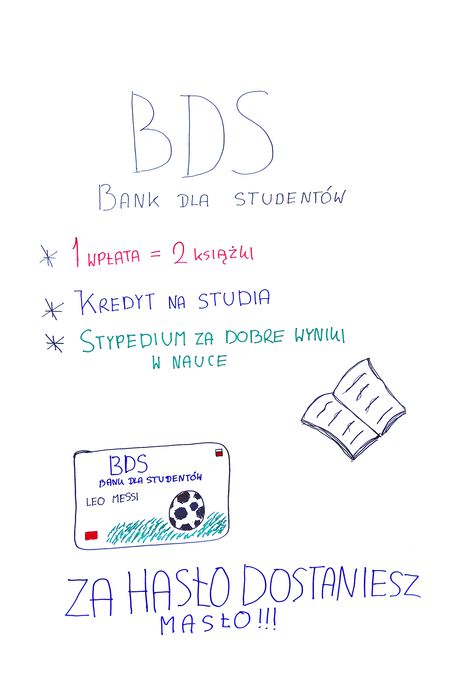 BDS
BANK DLA STUDENTÓW
* 1 WPŁATA = 2 KSIĄŻKI
* KREDYT NA STUDIA
* STYPEDIUM ZA DOBRE WYNIKI
W NAUCE
BDS
BANK DLA STUDENTÓW
LEO MESSI
ZA HASŁO DOSTANIESZ
MASŁO!!!